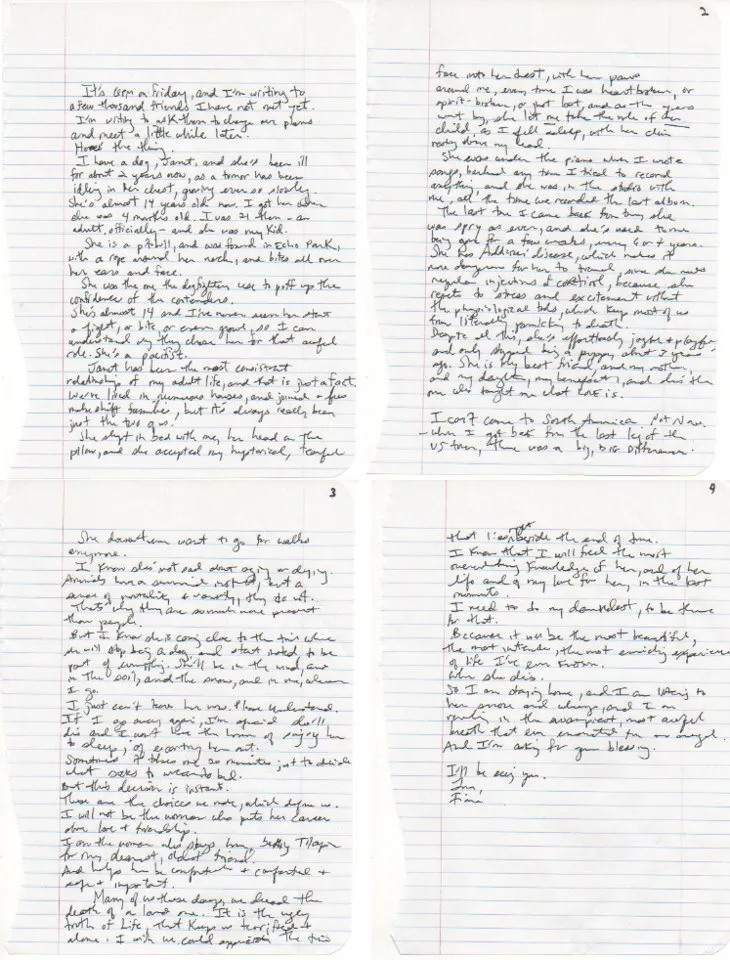 It's 6pm on Friday, and I'm writing to
a few thousand friends I have not met yet.
I'm writing to ask them to change our plans
and meet a little while later.
Here's the thing.
I have a dog, Janet, and she's been ill
for about 2 years now, as a tumor has been
idling in her chest, growing ever so slowly.
She's almost 14 years old now. I got her when
she was 4 months old. I was 21 then – an
adult, officially – and she was my kid.
She is a pitbull, and was found in Echo Park,
with a rope around her neck, and bites all over
her ears and face.
She was the one the dogfighters use to puff up the
confidence of the contenders.
She's almost 14 and I've never seen her start
a fight, or bite, or even growl, so I can
understand why they chose her for that awful
role. She's a pacifist.
Janet has been the most consistent
relationship of my adult life, and that is just a fact.
We've lived in numerous houses, and joined a few
makeshift families, but it's always really been
just the two of us.
She slept in bed with me, her head on the
pillow, and she accepted my hysterical, tearful
2
face into her chest, with her paws
around me, every time I was heartbroken, or
spirit-broken, or just lost, and as the years
went by, she let me take the role of her
child, as I fell asleep, with her chin
resting above my head.
She was under the piano when I wrote
songs, barked any time I tried to record
anything, and she was in the studio with
me, all the time we recorded the last album.
The last time I came back from tour, she
was spry as ever, and she's used to me
being gone for a few weeks, every 6 or 7 years.
She has Addison's disease, which makes it
more dangerous for her to travel, since she needs
regular injections of cortisol, because she
reacts to stress and excitement without
the physiological tools which keep most of us
from literally panicking to death.
Despite all this, she's effortlessly joyful & playful,
and only stopped being a puppy about 3 years
ago. She is my best friend, and my mother,
and my daughter, my benefactor, and she's the
one who taught me what love is.
I can't come to South America. Not now.
– When I got back from the last leg of the
US tour, there was a big, big difference.
3
She doesn't even want to go for walks
anymore.
I know she's not sad about aging or dying.
Animals have a survival instinct, but a
sense of mortality & vanity, they do not.
That's why they are so much more present
than people.
But I know she is coming close to the time where
she will stop being a dog and start instead to be
part of everything. She'll be in the wind, and
in the soil, and the snow, and in me, wherever
I go.
I just can't leave her now. Please understand.
If I go away again, I'm afraid she'll
die and I won't have the honor of singing her
to sleep, of escorting her out.
Sometimes it takes me 20 minutes just to decide
what socks to wear to bed.
But this decision is instant.
These are the choices we make, which define us.
I will not be the woman who puts her career
over love & friendship.
I am the woman who stays home, baking Tilapia
for my dearest, oldest friend.
And helps her be comfortable & comforted &
safe & important.
Many of us these days, we dread the
death of a loved one. It is the ugly
truth of Life, that keeps us terrified &
alone. I wish we could appreciate the time
4
that lies right beside the end of time.
I know that I will feel the most
overwhelming knowledge of her, and of her
life and of my love for her, in the last
moments.
I need to do my damnedest, to be there
for that.
Because it will be the most beautiful,
the most intense, the most enriching experience
of life I've ever known.
When she dies.
So I am staying home, and I am listening to
her snore and wheeze, and I am
revelling in the swampiest, most awful
breath that ever emanated from an angel.
And I'm asking for your blessing.
I'll be seeing you.
Love,
Fiona